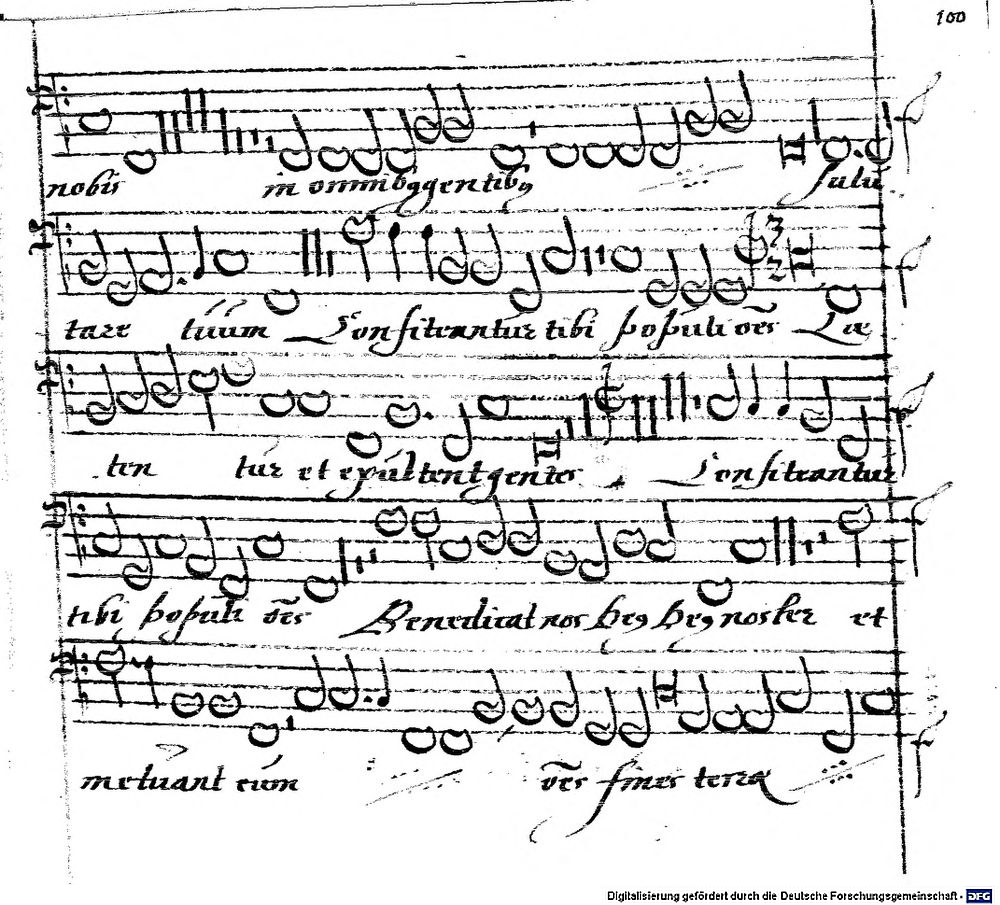 100
nobis in omnibꝯ gentibꝯ salu
tare tuum Confiteantur tibi populi oẽs Læ
ten tur et exultent gentes Confiteantur
tibi populi oẽs Benedicat nos Deꝯ Deꝯ noster et
metuant eum oẽs fines terræ
Digitalisierung gefördert durch die Deutsche Forschungsgemeinschaft - DFG